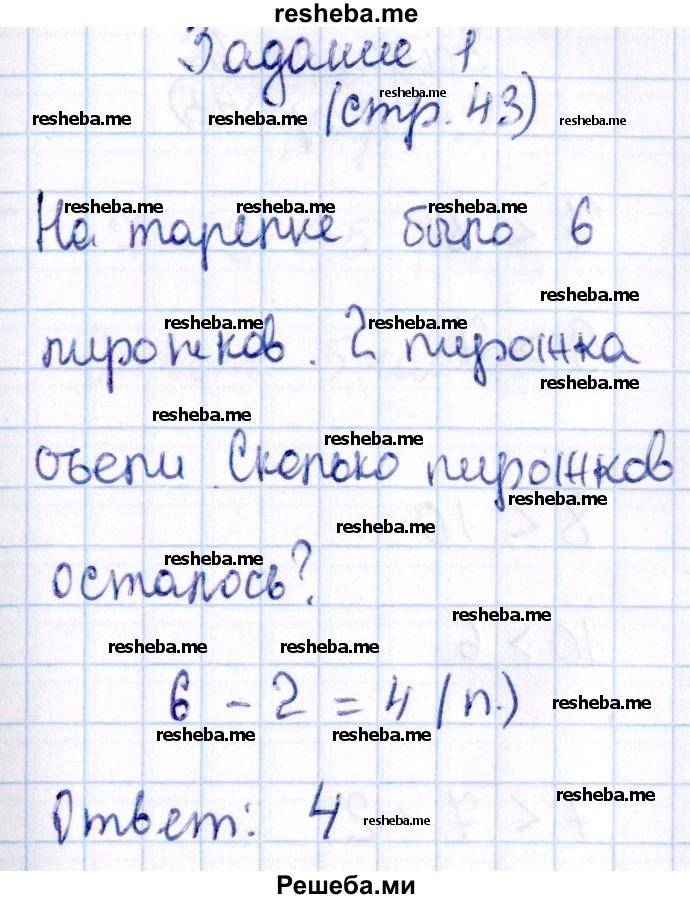 resheba.me
Задание 1
resheba.me resheba.me (стр. 43) resheba.me resheba.me
resheba.me resheba.me resheba.me
На тарелке было 6
resheba.me
resheba.me resheba.me
пирожков. 2 пирожка
resheba.me
resheba.me
resheba.me
съели. Сколько пирожков
resheba.me
resheba.me
8 < 10
resheba.me
осталось?
resheba.me
resheba.me resheba.me
10 > 6
6 - 2 = 4 (п.) resheba.me
resheba.me resheba.me
resheba.me
Ответ: 4 resheba.me
Решеба.ми